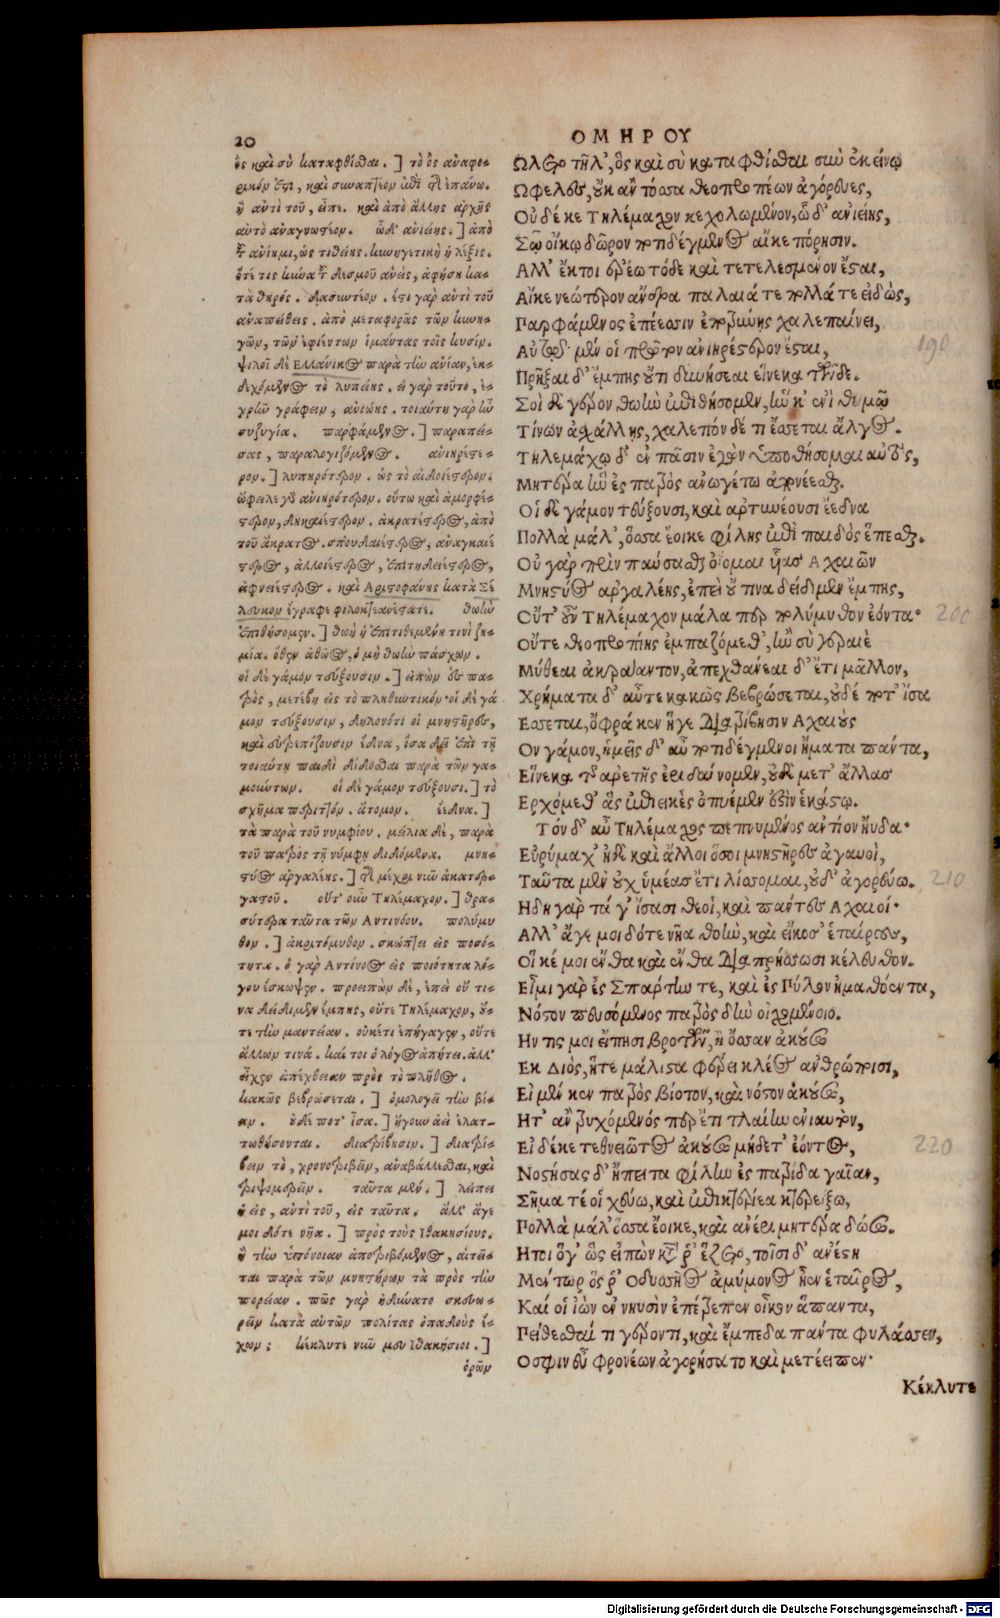 20
ΟΜΗΡΟΥ
ὃς καὶ σὺ καταφθίσθαι. ] τὸ ὃς ἀναφο-
ρικόν ἐστι, καὶ συναπτέον ἐπὶ τὰ ἐπάνω.
ἢ ἀντὶ τοῦ, εἴπε. καὶ ἀπὸ ἄλλης ἀρχῆς
αὐτὸ ἀναγνωστέον. ὧδ' ἀνιείης. ] ἀπὸ
τοῦ ἀνίημι, ὡς τιθείης. κυνηγετικὴ ἡ λέξις.
ὅτε τις κύνα τοῦ δεσμοῦ ἀνεὶς, ἀφήσῃ κα-
τὰ θηρός. δασυντέον. ἔτι γὰρ ἀντὶ τοῦ
ἀναπείθεις. ἀπὸ μεταφορᾶς τῶν κυνη-
γῶν, τῶν ἐφιέντων ἱμάντας τοῖς κυσίν.
ψιλοῖ δὲ Ελλάνικος παρὰ τὴν ἀνίαν, ἐκ-
δεχόμενος τὸ λυπείης. εἰ γὰρ τοῦτο, ἐ-
χρῆν γράφειν, ἀνιῴης. τοιαύτη γὰρ ἦν
συζυγία. παρφάμενος. ] παραπεί-
σας, παραλογιζόμενος. ἀνιηρέστε-
ρον. ] λυπηρότερον. ὡς τὸ αἰδοιέστερον.
ὤφειλε γὰρ ἀνιηρότερον. οὕτω καὶ ἀμορφέ-
στερον, δικαιέστερον. ἀκρατέστερος, ἀπὸ
τοῦ ἄκρατος. σπουδαιέστερος, ἀναγκαιέ
στερος, ἀλλοιέστερος, ἐπιτηδειέστερος,
ἀφνειέστερος. καὶ Αριστοφάνης κατὰ Σέ
λευκον ἔγραφε φιλοκτεανέστατε. θωὴν
ἐπιθήσομεν. ] θωὴ ἡ ἐπιτιθεμένη τινὶ ζη-
μία. ὅθεν ἀθῷος, ὁ μὴ θωὴν πάσχων.
οἱ δὲ γάμον τεύξουσιν. ] εἰπὼν ἐς πα-
τρὸς, μετέβη εἰς τὸ πληθυντικόν· οἱ δὲ γά
μον τεύξουσιν, δηλονότι οἱ μνηστῆρες,
καὶ εὐτρεπίζουσιν ἕδνα, ὅσα δεῖ ἐπὶ τῇ
τοιαύτῃ παιδὶ δίδοσθαι παρὰ τῶν γα-
μούντων. οἱ δὲ γάμον τεύξουσι. ] τὸ
σχῆμα περιττόν. ἄτομον. ἔεδνα. ]
τὰ παρὰ τοῦ νυμφίου. μείλια δὲ, παρὰ
τοῦ πατρὸς τῇ νύμφῃ διδόμενα. μνη-
στύος ἀργαλέης. ] τῆς μέχρι νῦν ἀκατερ-
γάστου. οὔτ' οὖν Τηλέμαχον. ] θρα-
σύτερα ταῦτα τῶν Αντινόου. πολύμυ
θον. ] ἀκριτόμυθον. σκώπτει εἰς ποσό-
τητα. ὁ γὰρ Αντίνοος εἰς ποιότητα λό-
γου ἔσκωψεν. προειπὼν δὲ, ἐπεὶ οὔ τι-
να δείδιμεν ἔμπης, οὔτε Τηλέμαχον, οὔ-
τε τὴν μαντείαν. οὐκέτι ἐπήγαγεν, οὔτε
ἄλλων τινά. καί τοι ὁ λόγος ἀπῄτει. ἀλλ'
εἶχεν ἀπέχθειαν πρὸς τὸ πλῆθος.
κακῶς βεβρώσεται. ] ὁμολογεῖ τὴν βί-
αν. οὐδέ ποτ' ἶσα. ] ἤγουν ἀεὶ ἐλατ-
τωθήσονται. διατρίβησιν. ] διατρί-
βειν τὸ, χρονοτριβεῖν, ἀναβάλλεσθαι, καὶ
τριψομερεῖν. ταῦτα μέν. ] λείπει
ἡ εἰς, ἀντὶ τοῦ, εἰς ταῦτα. ἀλλ' ἄγε
μοι δότε νῆα. ] πρὸς τοὺς Ιθακησίους.
ἢ τὴν ὑπόνοιαν ἀποτριβόμενος, αἰτεῖ-
ται παρὰ τῶν μνηστήρων τὰ πρὸς τὴν
πορείαν. πῶς γὰρ ἠδύνατο σκευω-
ρεῖν κατὰ αὐτῶν πολίτας ὀπαδοὺς ἔ-
χων; κέκλυτε νῦν μευ Ιθακήσιοι. ]
ὁρῶν
Ωλετο τῆλ', ὃς καὶ σὺ καταφθίσθαι σὺν ἐκείνῳ
Ωφελες, οὐκ ἂν τόσσα θεοπροπέων ἀγόρευες,
Οὐδέ κε Τηλέμαχον κεχολωμένον, ὧδ' ἀνιείης,
Σῷ οἴκῳ δῶρον ποτιδέγμενος αἴκε πόρησιν.
Αλλ' ἔκτοι ἐρέω τόδε καὶ τετελεσμένον ἔσται,
Αἴκε νεώτερον ἄνδρα παλαιά τε πολλά τε εἰδὼς,
Παρφάμενος ἐπέεσσιν ἐποτρύνῃς χαλεπαίνειν,
190
Αὐτῷ μέν οἱ πρῶτον ἀνιηρέστερον ἔσται,
Πρῆξαι δ' ἔμπης οὔτι δυνήσεαι εἵνεκα τῶνδε.
Σοὶ δὲ γέρον θωὴν ἐπιθήσομεν, ἥν κ' ἐνὶ θυμῷ
Τίνων ἀσχάλλῃς, χαλεπὸν δέ τι ἔσσεται ἄλγος.
Τηλεμάχῳ δ' ἐν πᾶσιν ἐγὼν ὑποθήσομαι αὐτὸς,
Μητέρα ἣν ἐς πατρὸς ἀνωγέτω ἀπονέεσθαι.
Οἱ δὲ γάμον τεύξουσι, καὶ ἀρτυνέουσι ἔεδνα
Πολλὰ μάλ', ὅσσα ἔοικε φίλης ἐπὶ παιδὸς ἕπεσθαι.
Οὐ γὰρ πρὶν παύσασθαι ὀΐομαι υἷας Αχαιῶν
Μνηστύος ἀργαλέης, ἐπεὶ οὔ τινα δείδιμεν ἔμπης,
200
Οὔτ' οὖν Τηλέμαχον μάλα περ πολύμυθον ἐόντα·
Οὔτε θεοπροπίης ἐμπαζόμεθ', ἣν σὺ γεραιὲ
Μύθεαι ἀκράαντον, ἀπεχθάνεαι δ' ἔτι μᾶλλον,
Χρήματα δ' αὖτε κακῶς βεβρώσεται, οὐδέ ποτ' ἶσα
Εσσεται, ὄφρά κεν ἥγε διατρίβησιν Αχαιοὺς
Ον γάμον, ἡμεῖς δ' αὖ ποτιδέγμενοι ἤματα πάντα,
Εἵνεκα τῆς ἀρετῆς ἐριδαίνομεν, οὐδὲ μετ' ἄλλας
Ερχόμεθ' ἃς ἐπιεικὲς ὀπυιέμεν ἐστὶν ἑκάστῳ.
Τὸν δ' αὖ Τηλέμαχος πεπνυμένος ἀντίον ηὔδα·
Εὐρύμαχ' ἠδὲ καὶ ἄλλοι ὅσοι μνηστῆρες ἀγαυοὶ,
210
Ταῦτα μὲν οὐχ ὑμέας ἔτι λίσσομαι, οὐδ' ἀγορεύω.
Ηδη γὰρ τά γ' ἴσασι θεοὶ, καὶ πάντες Αχαιοί·
Αλλ' ἄγε μοι δότε νῆα θοὴν, καὶ εἴκοσ' ἑταίρους,
Οἵ κέ μοι ἔνθα καὶ ἔνθα διαπρήσσωσι κέλευθον.
Εἶμι γὰρ ἐς Σπάρτην τε, καὶ ἐς Πύλον ἠμαθόεντα,
Νόστον πευσόμενος πατρὸς δὴν οἰχομένοιο.
Ην τις μοι εἴπησι βροτῶν, ἢ ὄσσαν ἀκούσω
Εκ Διὸς, ἥτε μάλιστα φέρει κλέος ἀνθρώποισι,
Εἰ μέν κεν πατρὸς βίοτον, καὶ νόστον ἀκούσω,
Ητ' ἂν τρυχόμενός περ ἔτι τλαίην ἐνιαυτὸν,
220
Εἰ δέ κε τεθνειῶτος ἀκούσω μηδέτ' ἐόντος,
Νοστήσας δ' ἤπειτα φίλην ἐς πατρίδα γαῖαν,
Σῆμα τέ οἱ χεύω, καὶ ἐπὶ κτέρεα κτερεΐξω,
Πολλὰ μάλ' ὅσσα ἔοικε, καὶ ἀνέρι μητέρα δώσω.
Ητοι ὅγ' ὣς εἰπὼν κατ' ἄρ' ἕζετο, τοῖσι δ' ἀνέστη
Μέντωρ ὅς ῥ' Οδυσῆος ἀμύμονος ἦεν ἑταῖρος,
Καί οἱ ἰὼν ἐν νηυσὶν ἐπέτρεπεν οἶκον ἅπαντα,
Πείθεσθαί τι γέροντι, καὶ ἔμπεδα πάντα φυλάσσειν,
Οσφιν ἐῢ φρονέων ἀγορήσατο καὶ μετέειπεν·
Κέκλυτε
Digitalisierung gefördert durch die Deutsche Forschungsgemeinschaft - DFG